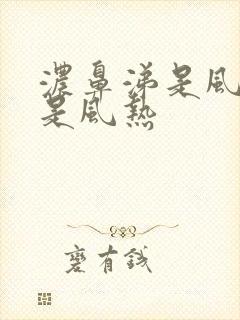 濃鼻涕是風
是風熱
有錢